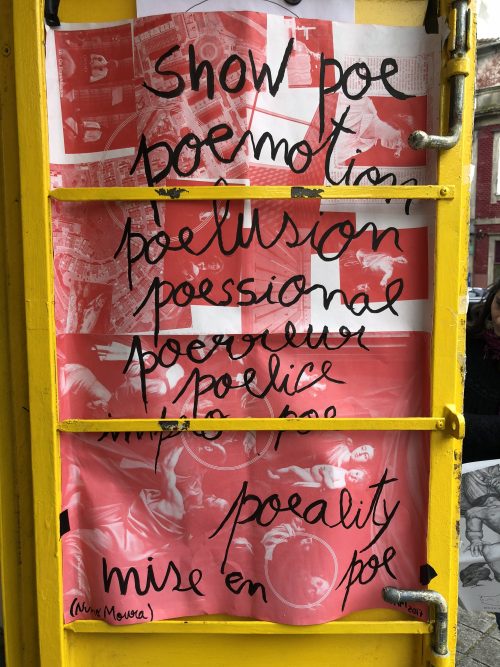 show poe
poemotion
poelusion
poessional
poerreur
poelice
poe
poeality
mise en poe
(Nuno Moura)
2017